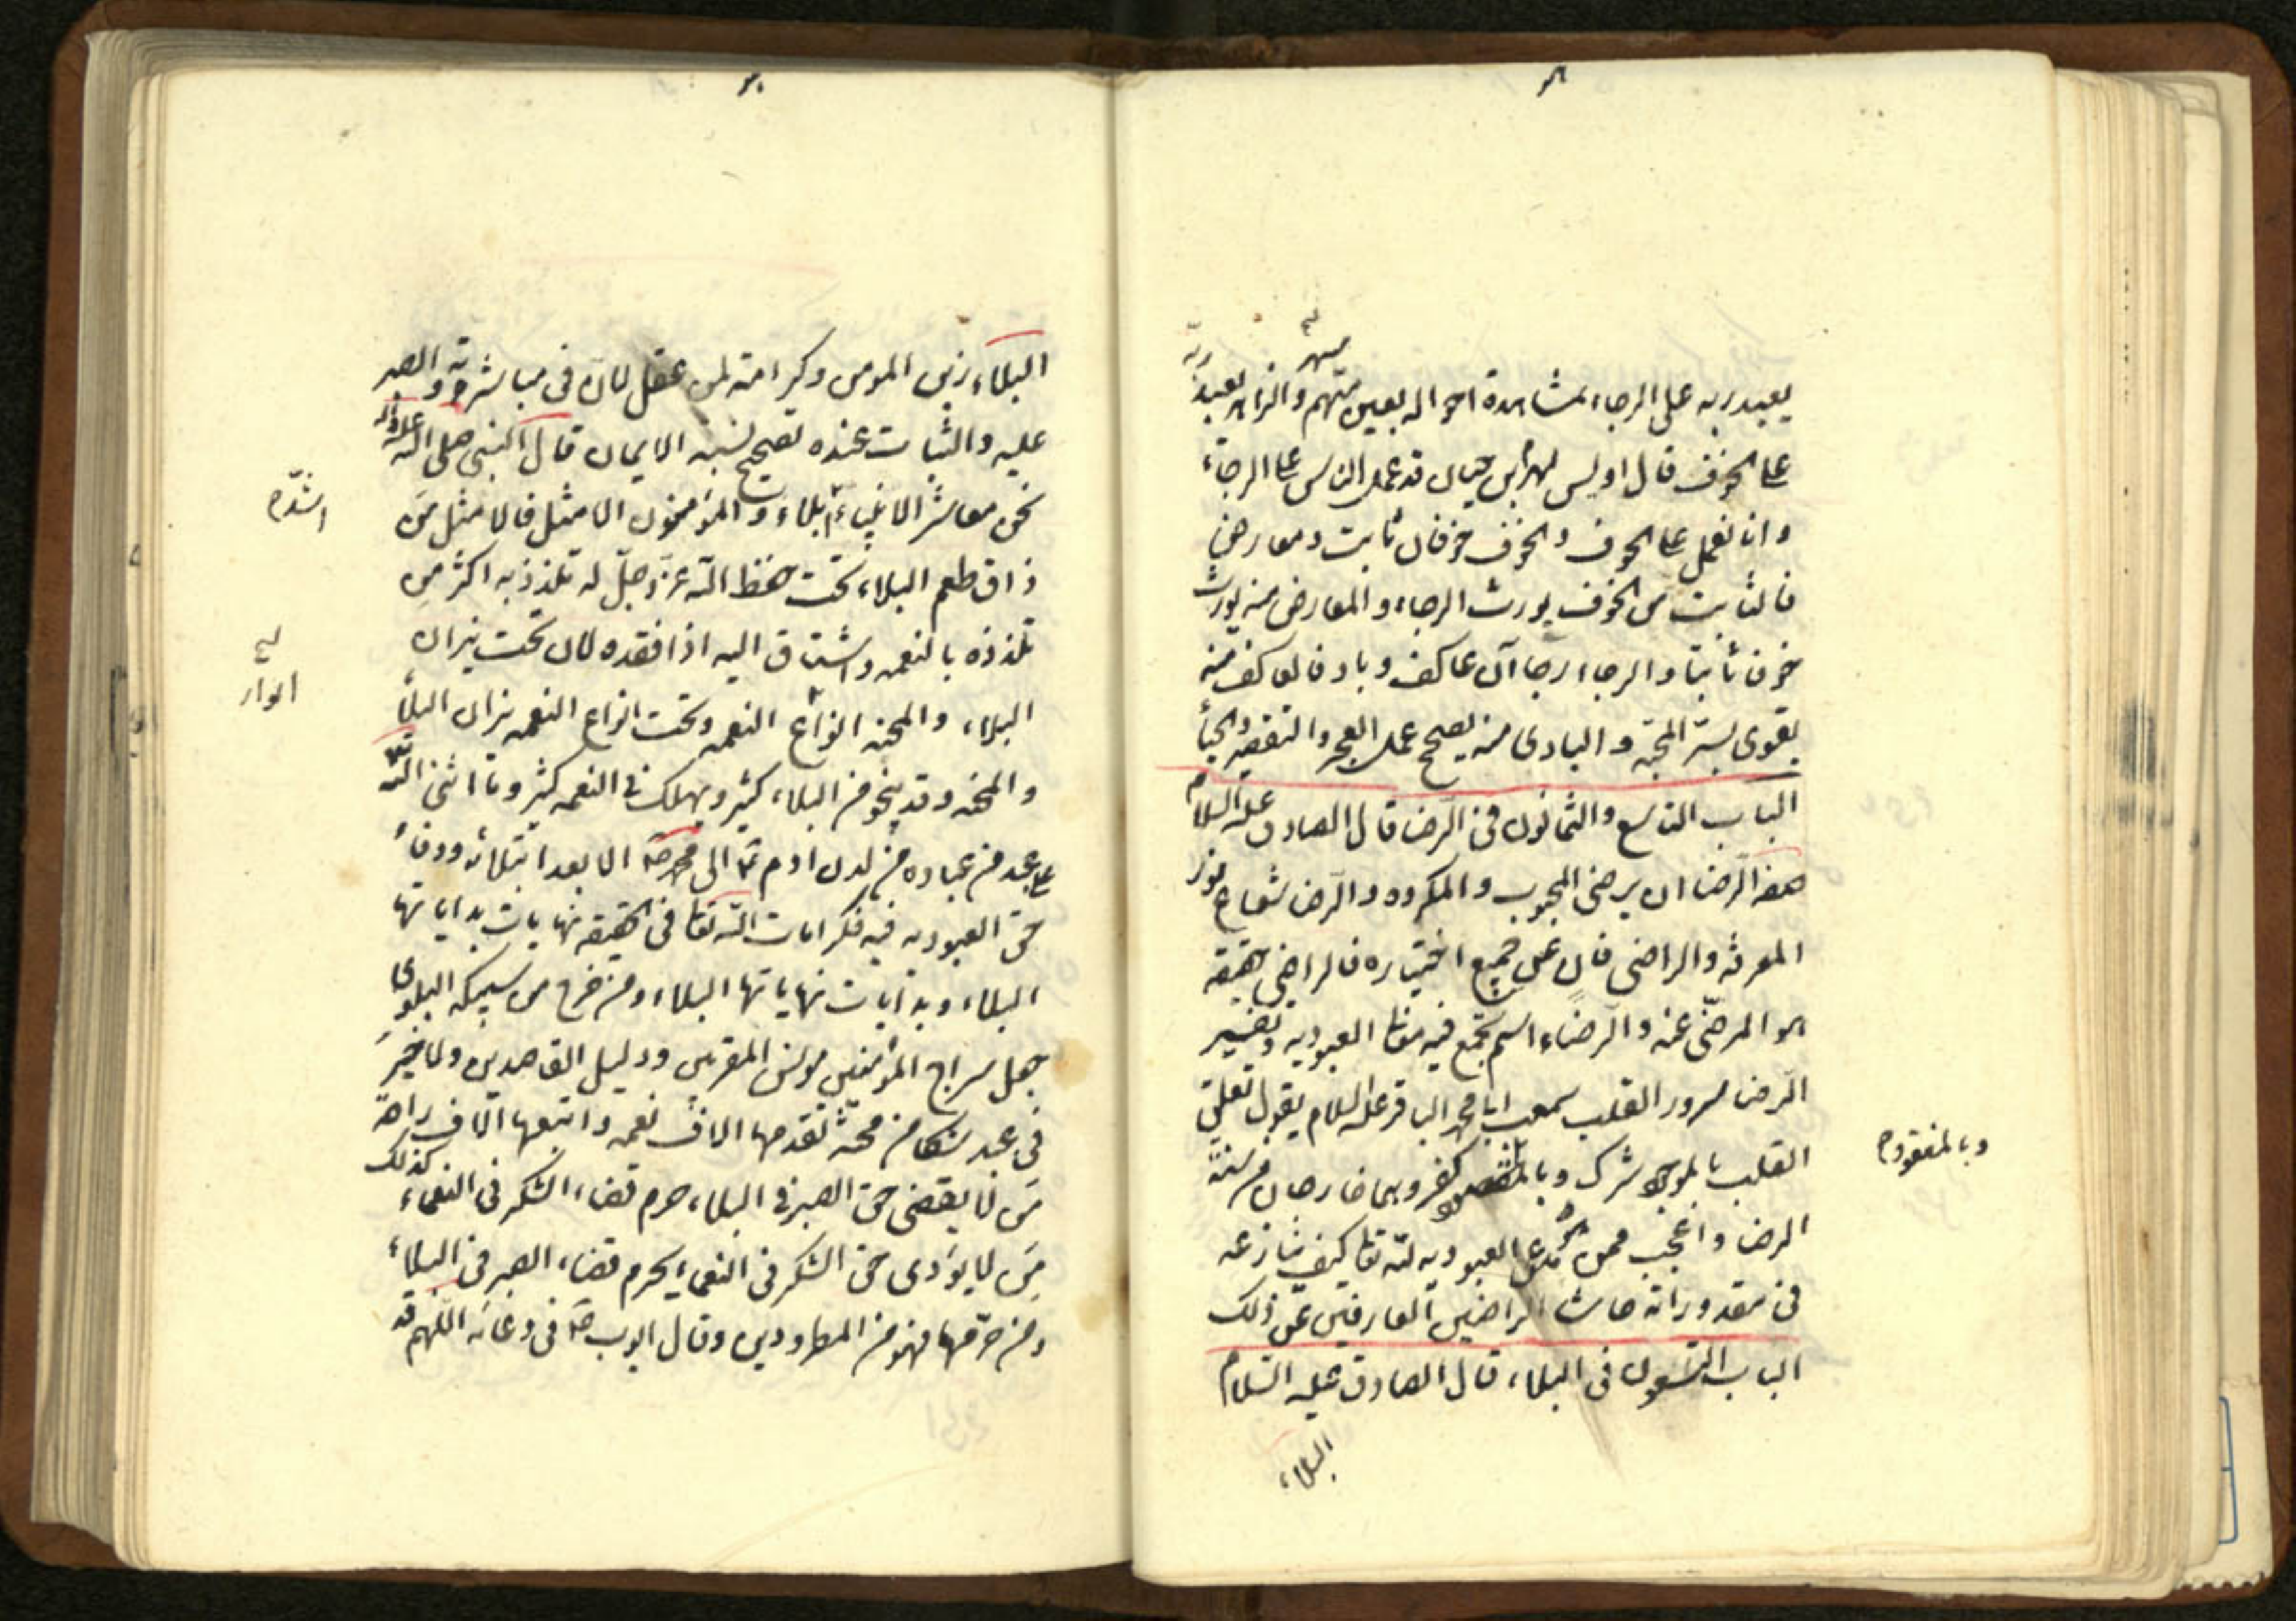 يعبد ربه على الرجاء بمشاهدة احواله بعين متهم والزاهد يعبد ربه
سهر
على الخوف قال اويس لهرم بن حيان قد عمل الناس على الرجاء
وانا نعمل على الخوف والخوف خوفان ثابت ومعارض
فالثابت من الخوف يورث الرجاء والمعارض منه يورث
خوفا ثابتا والرجاء رجاآن عاكف وباد فالعاكف منه
يقوى بستر المحبة والبادى منه يصحح عمل العجز والتقصير والحياء
الباب التاسع والثمانون فى الرضا قال الصادق عليه السلام
صفة الرضا ان يرضى المحبوب والمكروه والرضا شعاع نور
المعرفة والراضى فان عن جميع اختياره فالراضى حقيقة
هو المرضى عنه والرضاء اسم يجتمع فيه معانى العبودية وتفسير
الرضا سرور القلب سمعت ابا محمد الباقر عليه السلام يقول تعلق
القلب بالموجود شرك وبالمفقود كفر وهما خارجان من سنة
وبالمفقود
الرضا واعجب ممن يدعى العبودية لله تعا كيف ينازعه
فى مقدوراته حاشا الراضين العارفين عن ذلك
الباب التسعون فى البلاء قال الصادق عليه السلام
البلاء
البلاء زين المومن وكرامة لمن عقل لان فى مباشرته والصبر
عليه والثبات عنده تصحيح نسبة الايمان قال النبى صلى الله عليه واله
نحن معاشر الانبياء ابلاء والمؤمنون الامثل فالامثل من
اشد
ذاق طعم البلاء تحت حفظ الله عز وجل له تلذذ به اكثر من
تلذذه بالنعمه واشتاق اليه اذا فقده لان تحت نيران
البلاء والمحنه انواع النعمه وتحت انواع النعمه نيران البلاء
انوار
والمحنه وقد ينجو من البلاء كثير ويهلك فى النعمه كثير وما اثنى الله
على عبد من عباده من لدن ادم ع الى محمد ص الا بعد ابتلائه ووفاء
حق العبوديه فيه فكرامات الله تعا فى الحقيقه نهايات بداياتها
البلاء وبدايات نهاياتها البلاء ومن خرج من سبيكه البلوى
جعل سراج المؤمنين مونس المقربين ودليل القاصدين ولا خير
فى عبد شكا من محنة تقدمها الاف نعمه واتبعها الاف راحة
من لا يقضى حق الصبر فى البلاء حرم قضاء الشكر فى النعماء كذلك
من لا يؤدى حق الشكر فى النعماء يحرم قضاء الصبر فى البلاء
ومن حرمهما فهو من المطرودين وقال ايوب ع فى دعائه اللهم قد